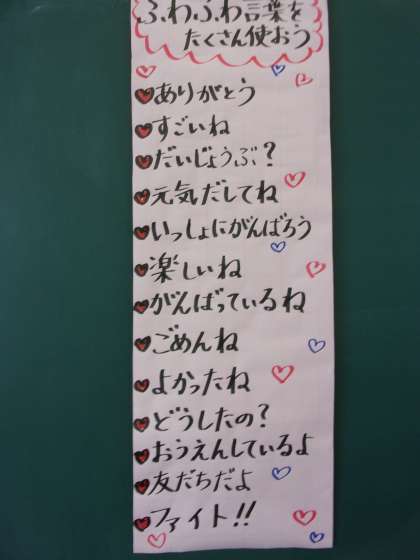 ふわふわ言葉を
たくさん使おう
ありがとう
すごいね
だいじょうぶ?
元気だしてね
いっしょにがんばろう
楽しいね
がんばっているね
ごめんね
よかったね
どうしたの?
おうえんしているよ
友だちだよ
ファイト!!